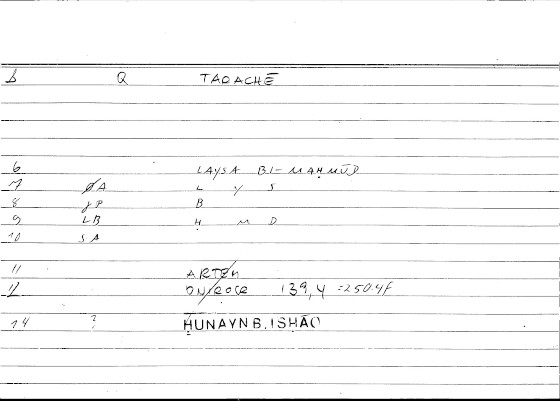 b Q TAOACHĒ
6 LAYSA BI-MAḤMŪD
7 ØA L Y S
8 JP B
9 LB Ḥ M D
10 SA
11 ARTEM
12 ON/ROCR 139,4 =250.4f
14 ? ḤUNAYN B. ISḤĀO